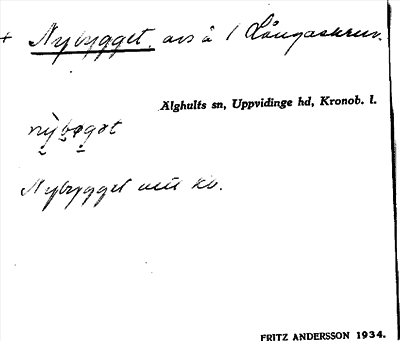 + Nybygget, avs å 1 Långaskruv.
Älghults sn, Uppvidinge hd, Kronob. l.
nỳbøgət
Nybygget utti kv.
FRITZ ANDERSSON 1934.